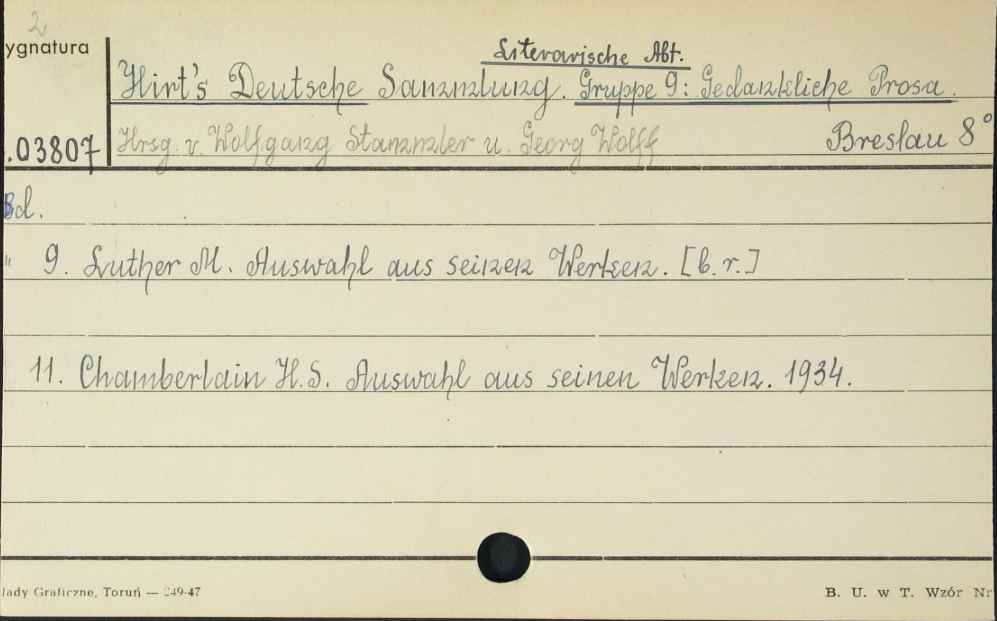 2
ygnatura
Literarische Abt.
Hirt's Deutsche Sammlung. Gruppe 9: Gedankliche Prosa.
.03807
Hrsg. v. Wolfgang Stammler u. Georg Wolff
Breslau 8°
Bd.
9. Luther M. Auswahl aus seinen Werken. [b.r.]
11. Chamberlain H.S. Auswahl aus seinen Werken. 1934.
łady Graficzne, Toruń — 249-47
B. U. w T. Wzór Nr